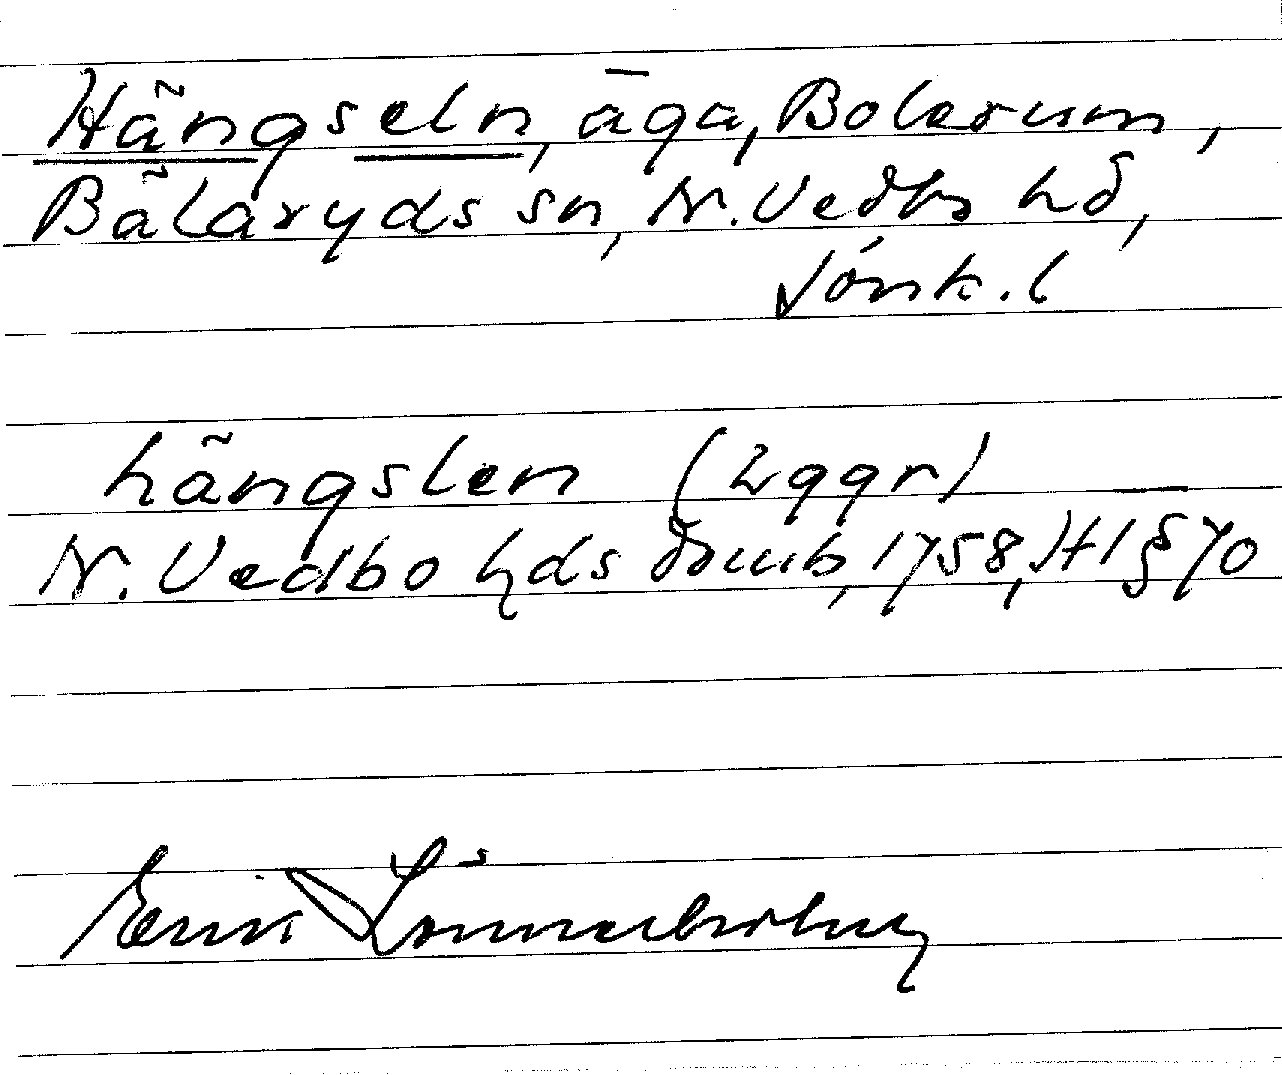 Hängseln, äga, Bolerum,
Bälaryds sn, N. Vedbo hd,
Jönk. l
hängslen (2 ggr)
N. Vedbo hds domb, 1758, Ht § 70
Erik Lönnerholm